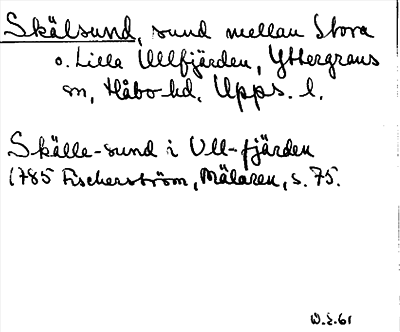 Skälsund, sund mellan Stora
o. Lilla Ullfjärden, Yttergrans
sn, Håbo hd, Upps. l.
Skälle-sund i Ull-fjärden
1785 Fischerström, Mälaren, s. 75.
W.E.61